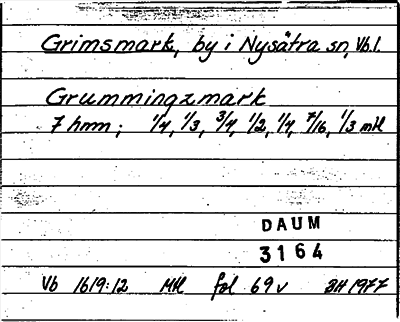 Grimsmark, by i Nysätra sn, Vb.l.
Grummingzmark
7 hmn; 1/4, 1/3, 3/4, 1/2, 1/4, 7/16, 1/3 mtl
DAUM
3164
Vb 1619:12 Mtl fol 69v BH 1977